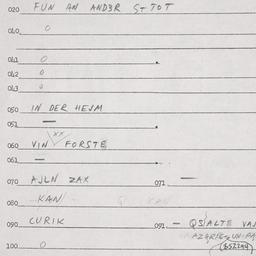 020 FUN AN ANDER STOT
040 0
041 0
042 0
043 0
050 IN DER HEJM
051 —
060 VIN FORSTE
061 —
070 AJLN ZAX 071 —
080 KAN
090 CURIK 091 — QSALTE VAJ
100 0 652244